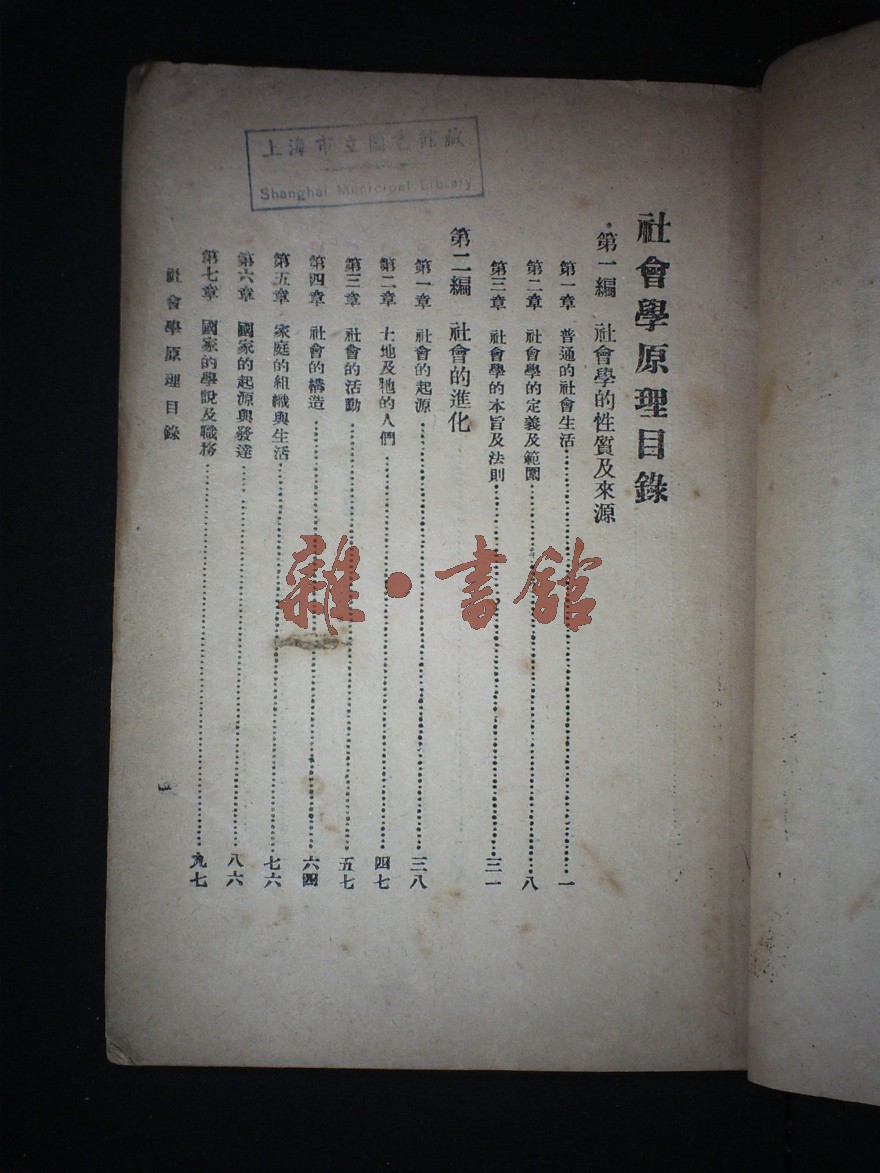 上海市立圖書館藏
Shanghai Municipal Library
社會學原理目錄
第一編 社會學的性質及來源
第一章 普通的社會生活⋯⋯一
第二章 社會學的定義及範圍⋯⋯八
第三章 社會學的本旨及法則⋯⋯三一
第二編 社會的進化
第一章 社會的起源⋯⋯三八
第二章 土地及牠的人們⋯⋯四七
第三章 社會的活動⋯⋯五七
第四章 社會的構造⋯⋯六四
第五章 家庭的組織與生活⋯⋯七六
第六章 國家的起源與發達⋯⋯八六
第七章 國家的學說及職務⋯⋯九七
社會學原理目錄
雜·書館